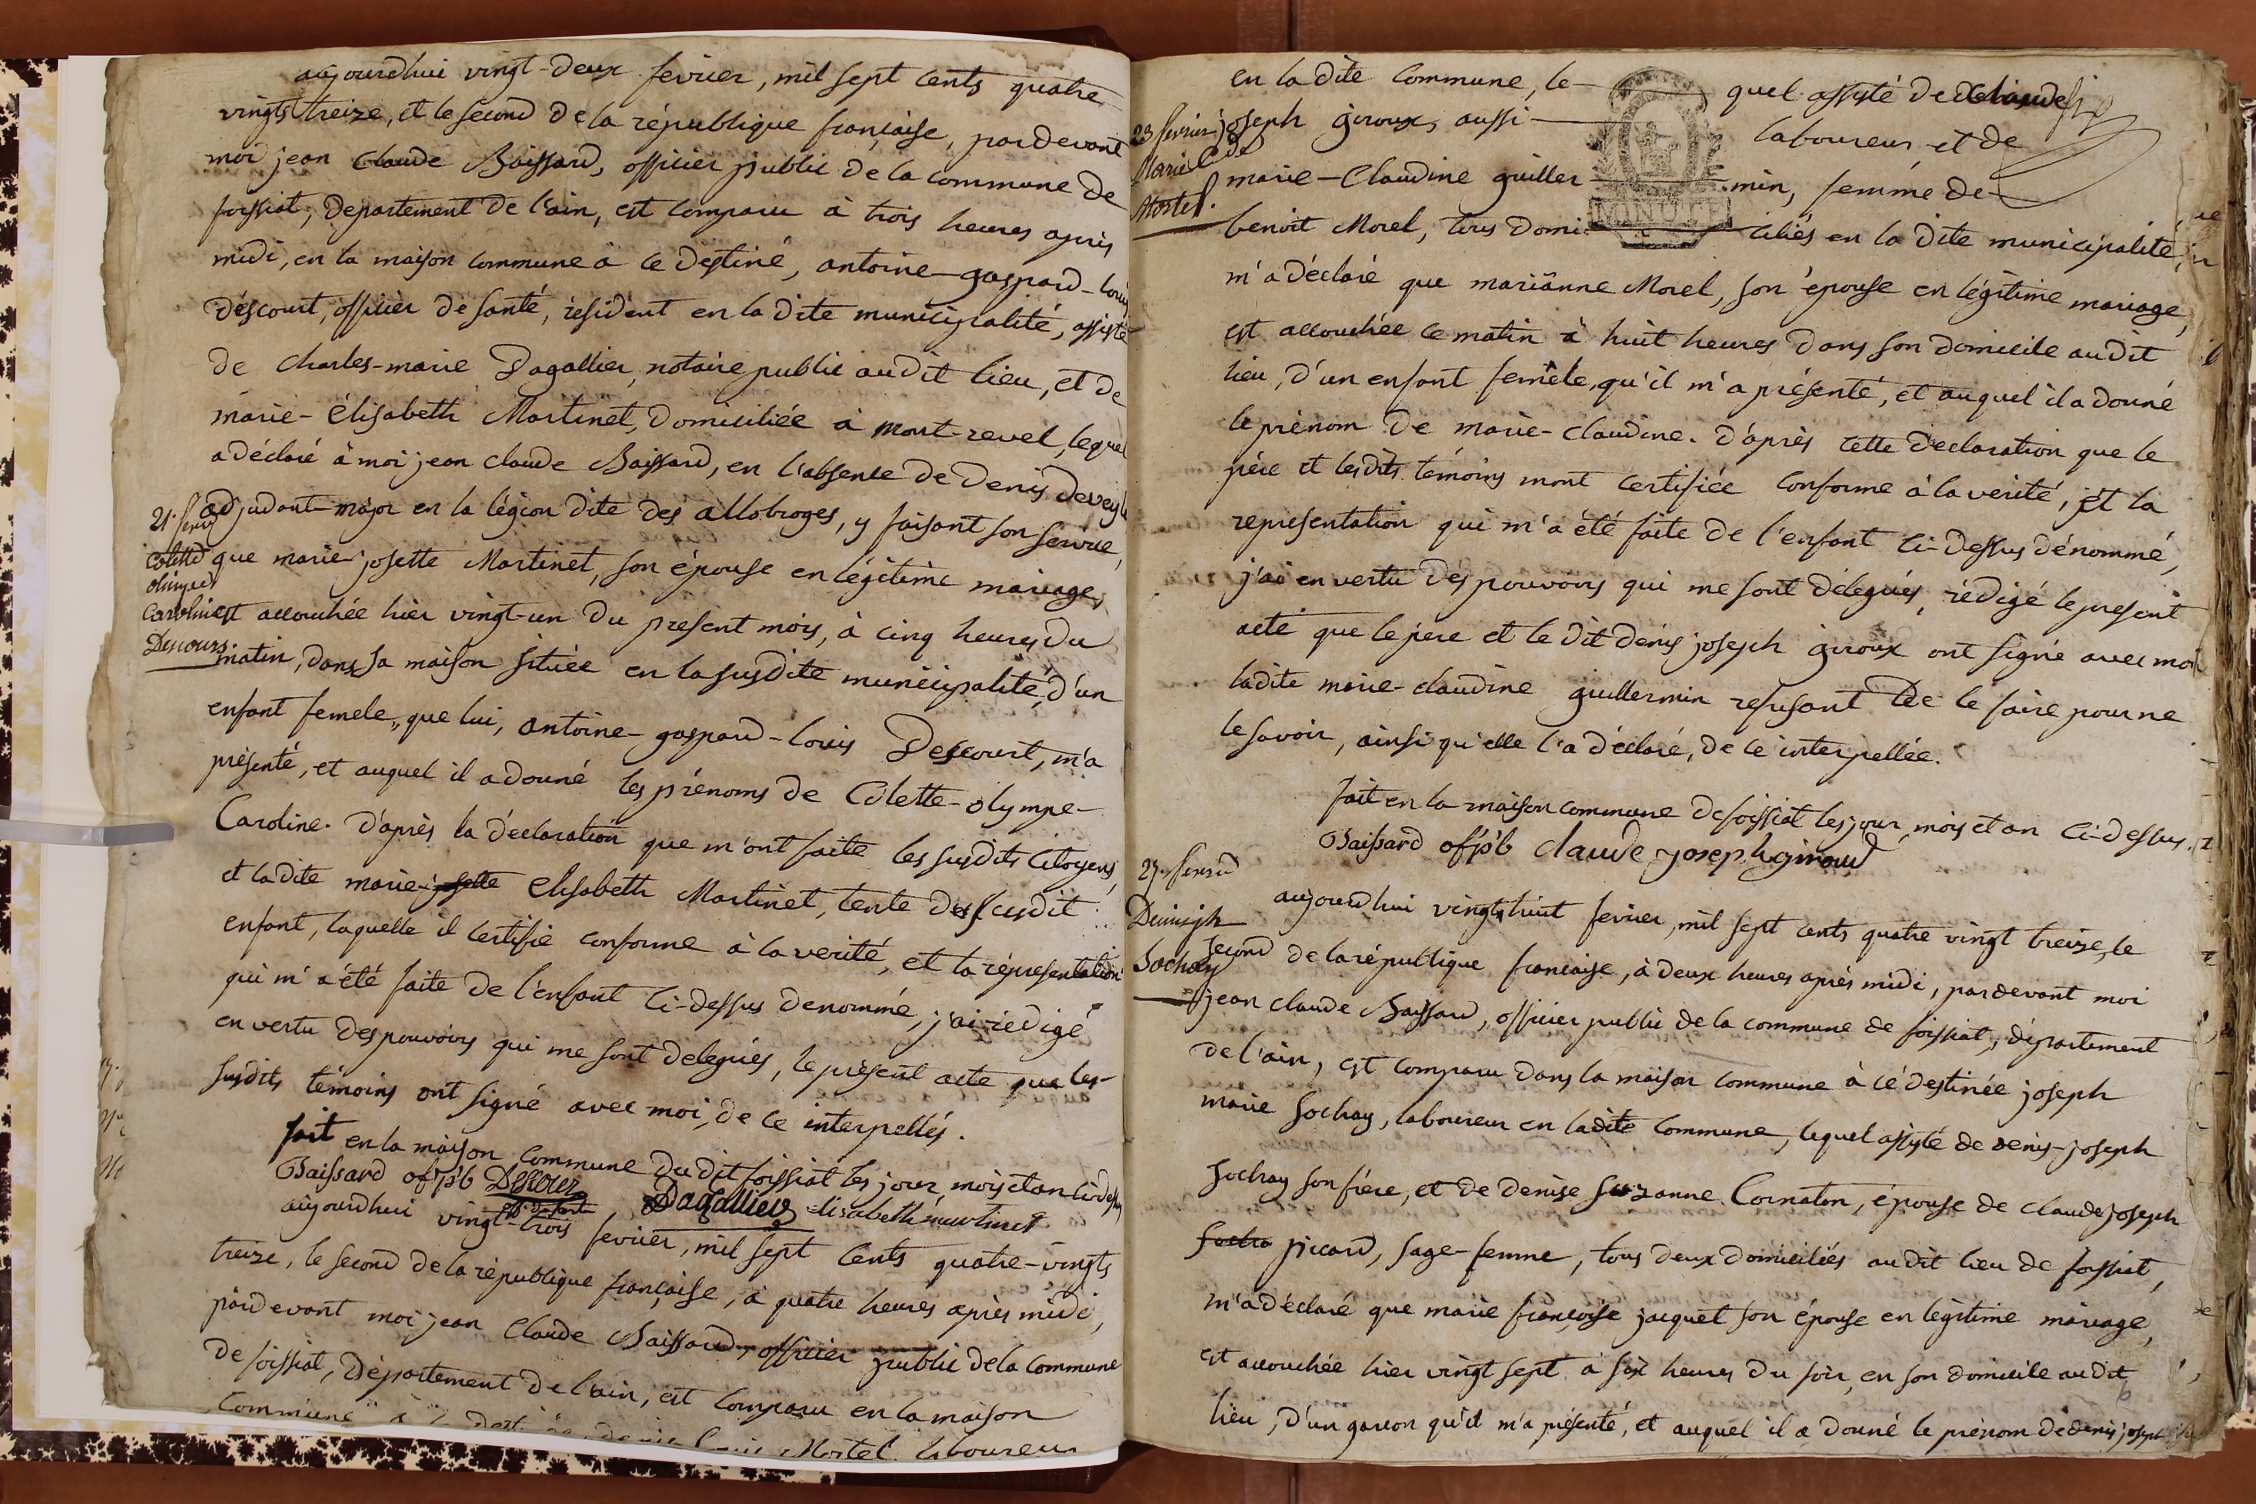 aujourdhui vingt-deux fevrier, mil sept cents quatre
vingts treize, et le second de la république française, pardevant
moi jean claude Baissard, officier public de la commune de
foissiat, departement de l'ain, est comparu à trois heures après
midi, en la maison commune à ce destiné, antoine-gaspard-louis
déscourt, officier de santé, résident en la dite municipalité, assisté
de charles-marie Dagallier, notaire public audit lieu, et de
marie-élisabeth Martinet, domiciliée à mont-revel, lequel
a déclaré à moi jean claude Baissard, en l'absence de denis deveyle
21. fevr
adjudant-major en la légion dite des allobroges, y faisant son service,
Colette
que marie-josette Martinet, son épouse en légitime mariage,
olimpe
Caroline
est accouchée hier vingt-un du present mois, à cinq heures du
Descours
matin, dans sa maison située en la susdite municipalité, d'un
enfant femele, que lui, antoine-gaspard-louis Descourt, m'a
présenté, et auquel il a donné les prénoms de Colette-olympe-
Caroline. d'après la déclaration que m'ont faite les susdits citoyens,
et ladite marie-josette elisabeth Martinet, tente du susdit
enfant, laquelle il certifie conforme à la verité, et la réprésentation
qui m'a été faite de l'enfant ci-dessus denommé, j'ai rédigé
en vertu des pouvoirs qui me sont delegués, le présent acte que les-
susdits témoins ont signé avec moi, de ce interpellés.
fait en la maison commune dudit foissiat les jour, mois et an ci-dessus
Baissard off pb Descour Dagallier elisabeth martinet
aujourdhui vingt-trois fevrier, mil sept cents quatre-vingts
treize, le second de la république française, à quatre heures après midi,
pardevant moi jean Claude Baissard, officier public de la commune
de foissiat, département de l'ain, est comparu en la maison
Commune à ce Mortel laboureur
en la dite commune, le- quel assisté de claude
23 fevrier
joseph giroux, aussi laboureur et de
Marie Cde
marie-Claudine guiller min, femme de
Mortel.
MINUTE
benoit Morel, tous domi ciliés en la dite municipalité,
m'a déclaré que marianne Morel, son épouse en légitime mariage,
est accouchée ce matin à huit heures dans son domicile audit
lieu, d'un enfant femele, qu'il m'a présenté, et auquel il a donné
le prénom de marie-claudine. d'après cette declaration que le
père et lesdits témoins mont certifiée conforme à la verité, et la
représentation qui m'a été faite de l'enfant ci-dessus dénommé,
j'ai en vertu des pouvoirs qui me sont délegués, rédigé le present
acte que le pere et le dit denis joseph giroux ont signé avec moi
ladite marie-claudine guillermin refusant de le faire pour ne
le savoir, ainsi qu'elle l'a déclaré, de ce interpellée.
fait en la maison commune de foissiat les jour, mois et an ci-dessus.
Baissard off pb claude joseph giroud
27. fevrier
aujourdhui vingt huit fevrier, mil sept cents quatre vingt treize, le
Denis jph
second de la république française, à deux heures après midi, pardevant moi
Sochay
jean claude Baissard, officier public de la commune de foissiat, département
de l'ain, est comparu dans la maison commune à ce destinée joseph
marie Sochay, laboureur en ladite commune, lequel assisté de denis-joseph
Sochay son frére, et de denise suzanne Cornaton, épouse de claude joseph
socha piccard, sage-femme, tous deux domiciliés audit lieu de foissiat,
m'a déclaré que marie françoise jacquet son épouse en légitime mariage,
est accouchée hier vingt sept à six heures du soir, en son domicile audit
lieu, d'un garcon qu'il m'a présenté, et auquel il a donné le prénom de denis joseph